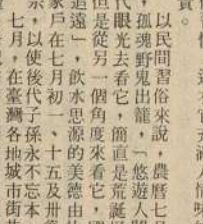 以民間習俗來說，農曆七
，孤魂野鬼出籠，「悠遊人
代眼光去看它，簡直是荒誕
但是從另一個角度來看它，
追遠」，飲水思源的美德由
家戶在七月初一、十五及卅
祭，以使後代子孫永不忘本
七月，在臺灣各地城市街